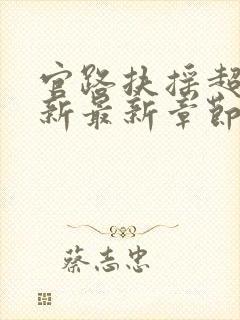 官路扶摇超
新最新章节
蔡志忠